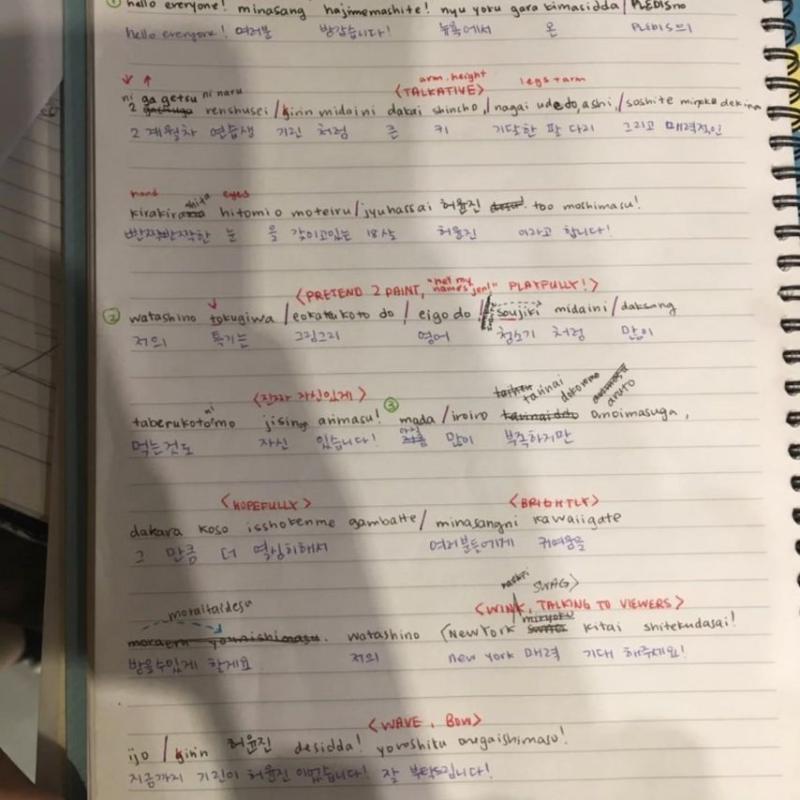 ① hello everyone! minasang hajimemashite! nyu yoku gara kimasidda / PLEDISno
hello everyone! 여러분 방갑습니다! 뉴욕에서 온 PLEDIS의
arm.height legs + arm
<TALKATIVE>
ni ga getsu ni naru
2 renshusei / kirin midaini dakai shincho, / nagai udedo, ashi, / soshite miryoku dekina
2 계월차 연습생 기린 처럼 큰 키 기닿한 팔 다리 그리고 매력적인
hand eyes
kirakira shita hitomio moteiru / jyuhassai 허윤진 desu! too moshimasu!
빤짝빤짝한 눈 을 갖이고있는 18살 허윤진 이라고 합니다!
<PRETEND 2 PAINT, "hei my name's jen!" PLAYFULLY!>
② watashino tokugiwa / eokakukoto do / eigo do / soujiki midaini / daksang
저의 특기는 그림그리 영어 청소기 처럼 많이
<진짜 자신있게>
tarinai dokoromo aruto
taberukoto ni mo jising arimasu! ③ mada / iroiro omoimasuga,
먹는것도 자신 있습니다! 아직 많이 부족하지만
<HOPEFULLY> <BRIGHTLY>
dakara koso isshokenme gambatte / minasangni kawaiigate
그 만큼 더 열심히해서 여러분들에게 귀여움을
SWAG>
<WINK, TALKING TO VIEWERS>
moraitaidesu miryoku
moraeru younishimasu. watashino (NEW YORK kitai shitekudasai!
받을수있게 할게요 저의 new york 매력 기대 해주세요!
<WAVE, BOW>
ijo / kirin 허윤진 desidda! yoroshiku onegaishimasu!
지금까지 기린이 허윤진 이었습니다! 잘 부탁드립니다!